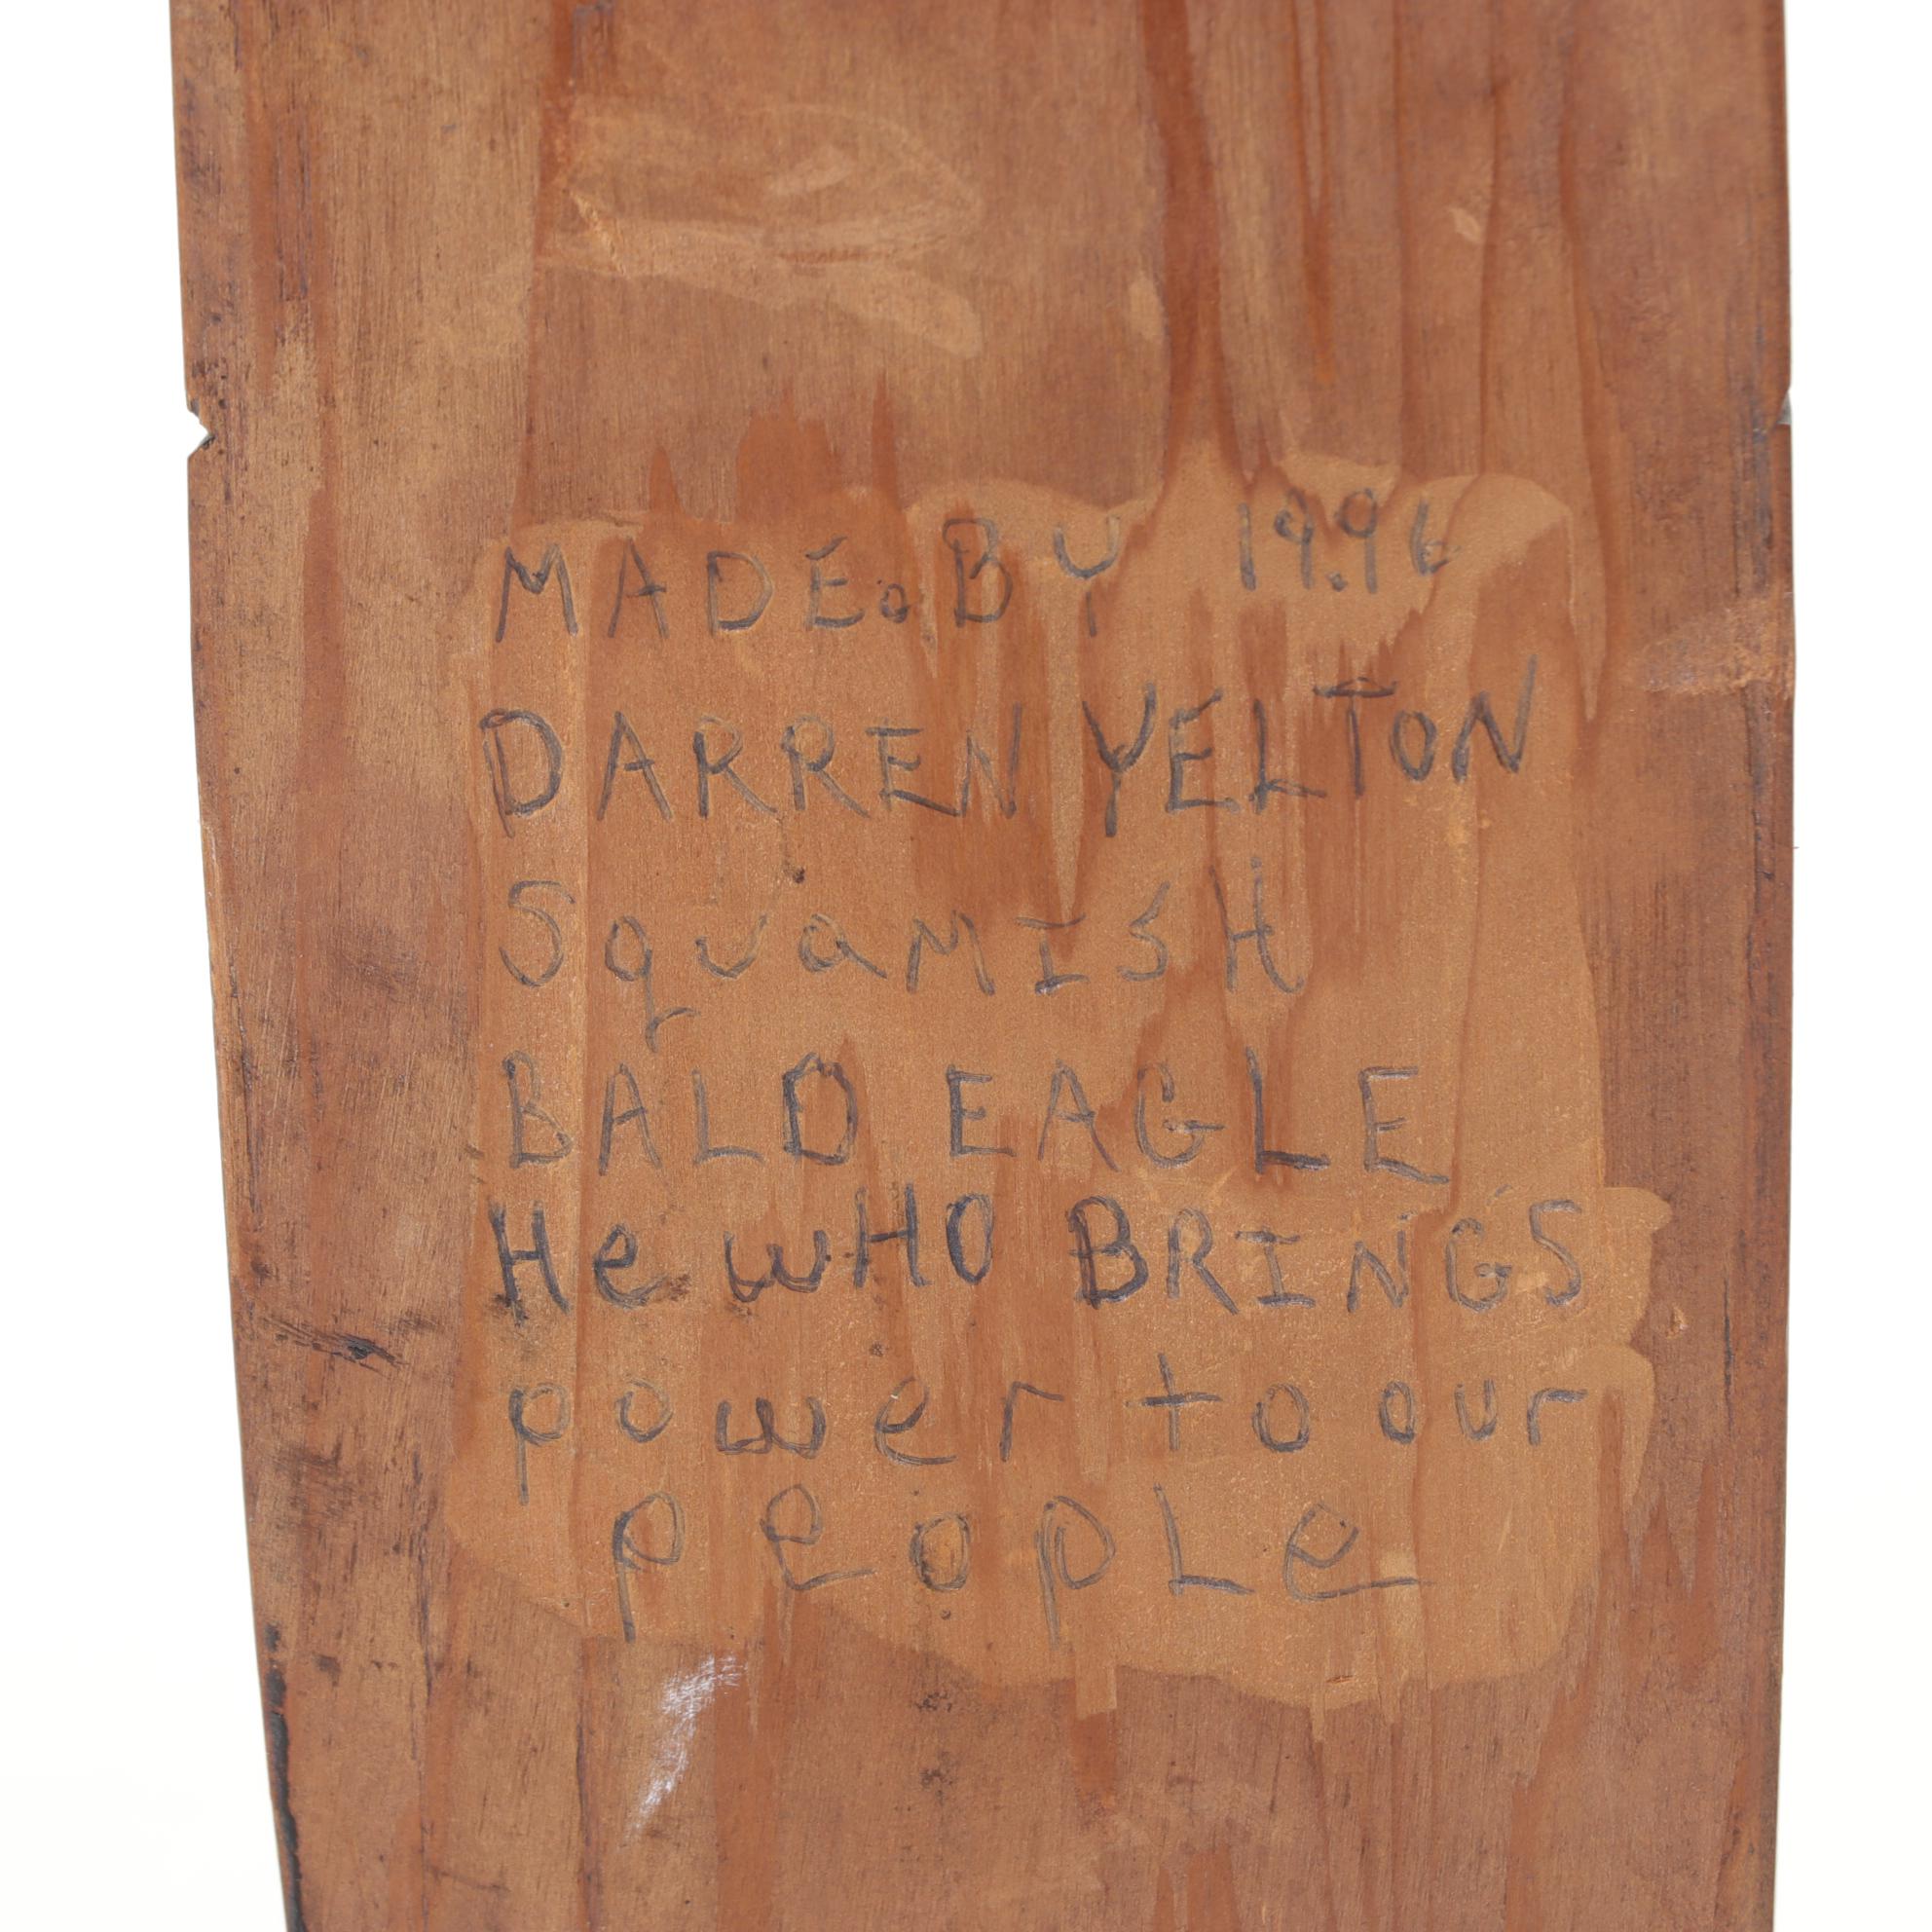 MADE. BY 19.96
DARREN YELTON
SquaMISH
BALD EAGLE
He wHO BRINGS
power to our
peopLe